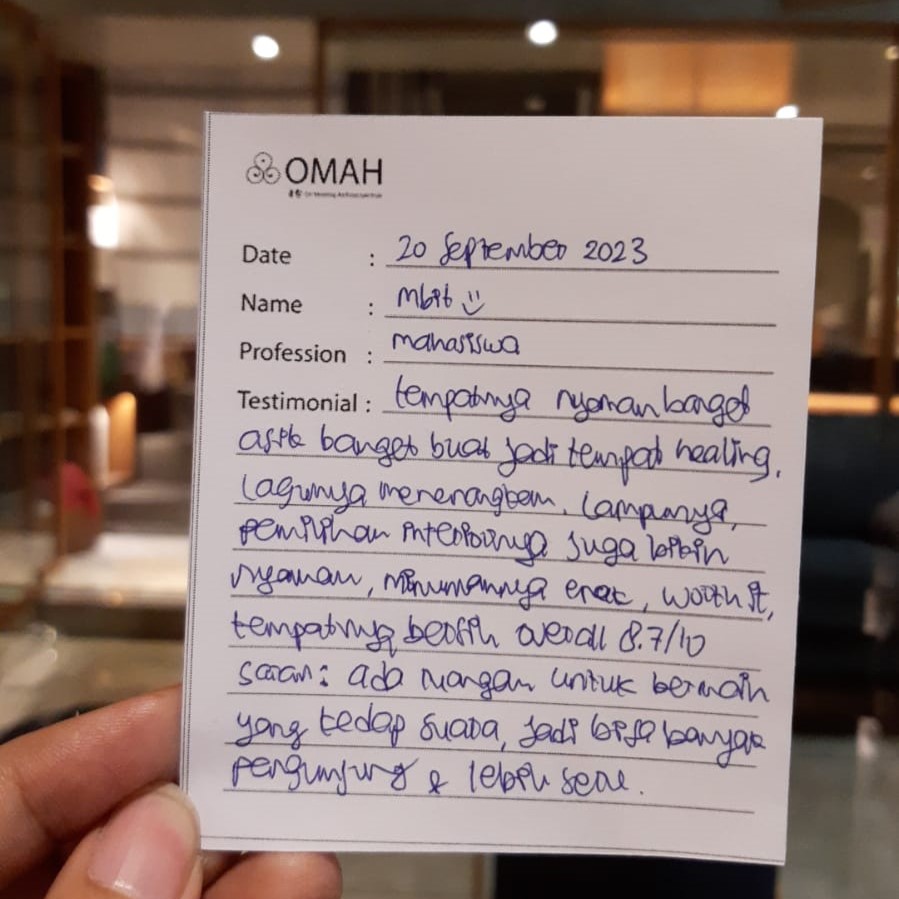 OMAH
Date : 20 September 2023
Name :
Profession : mahasiswa
Testimonial : tempatnya nyaman banget
asik banget buat jadi tempat healing.
Lagunya menenangkan. Lampunya,
pemilihan interiornya juga bikin
nyaman, minumannya enak, worth it,
tempatnya bersih overall 8.7/10
saran: ada ruangan untuk bermain
yang kedap suara, jadi bisa banyak
pengunjung & lebih seru.